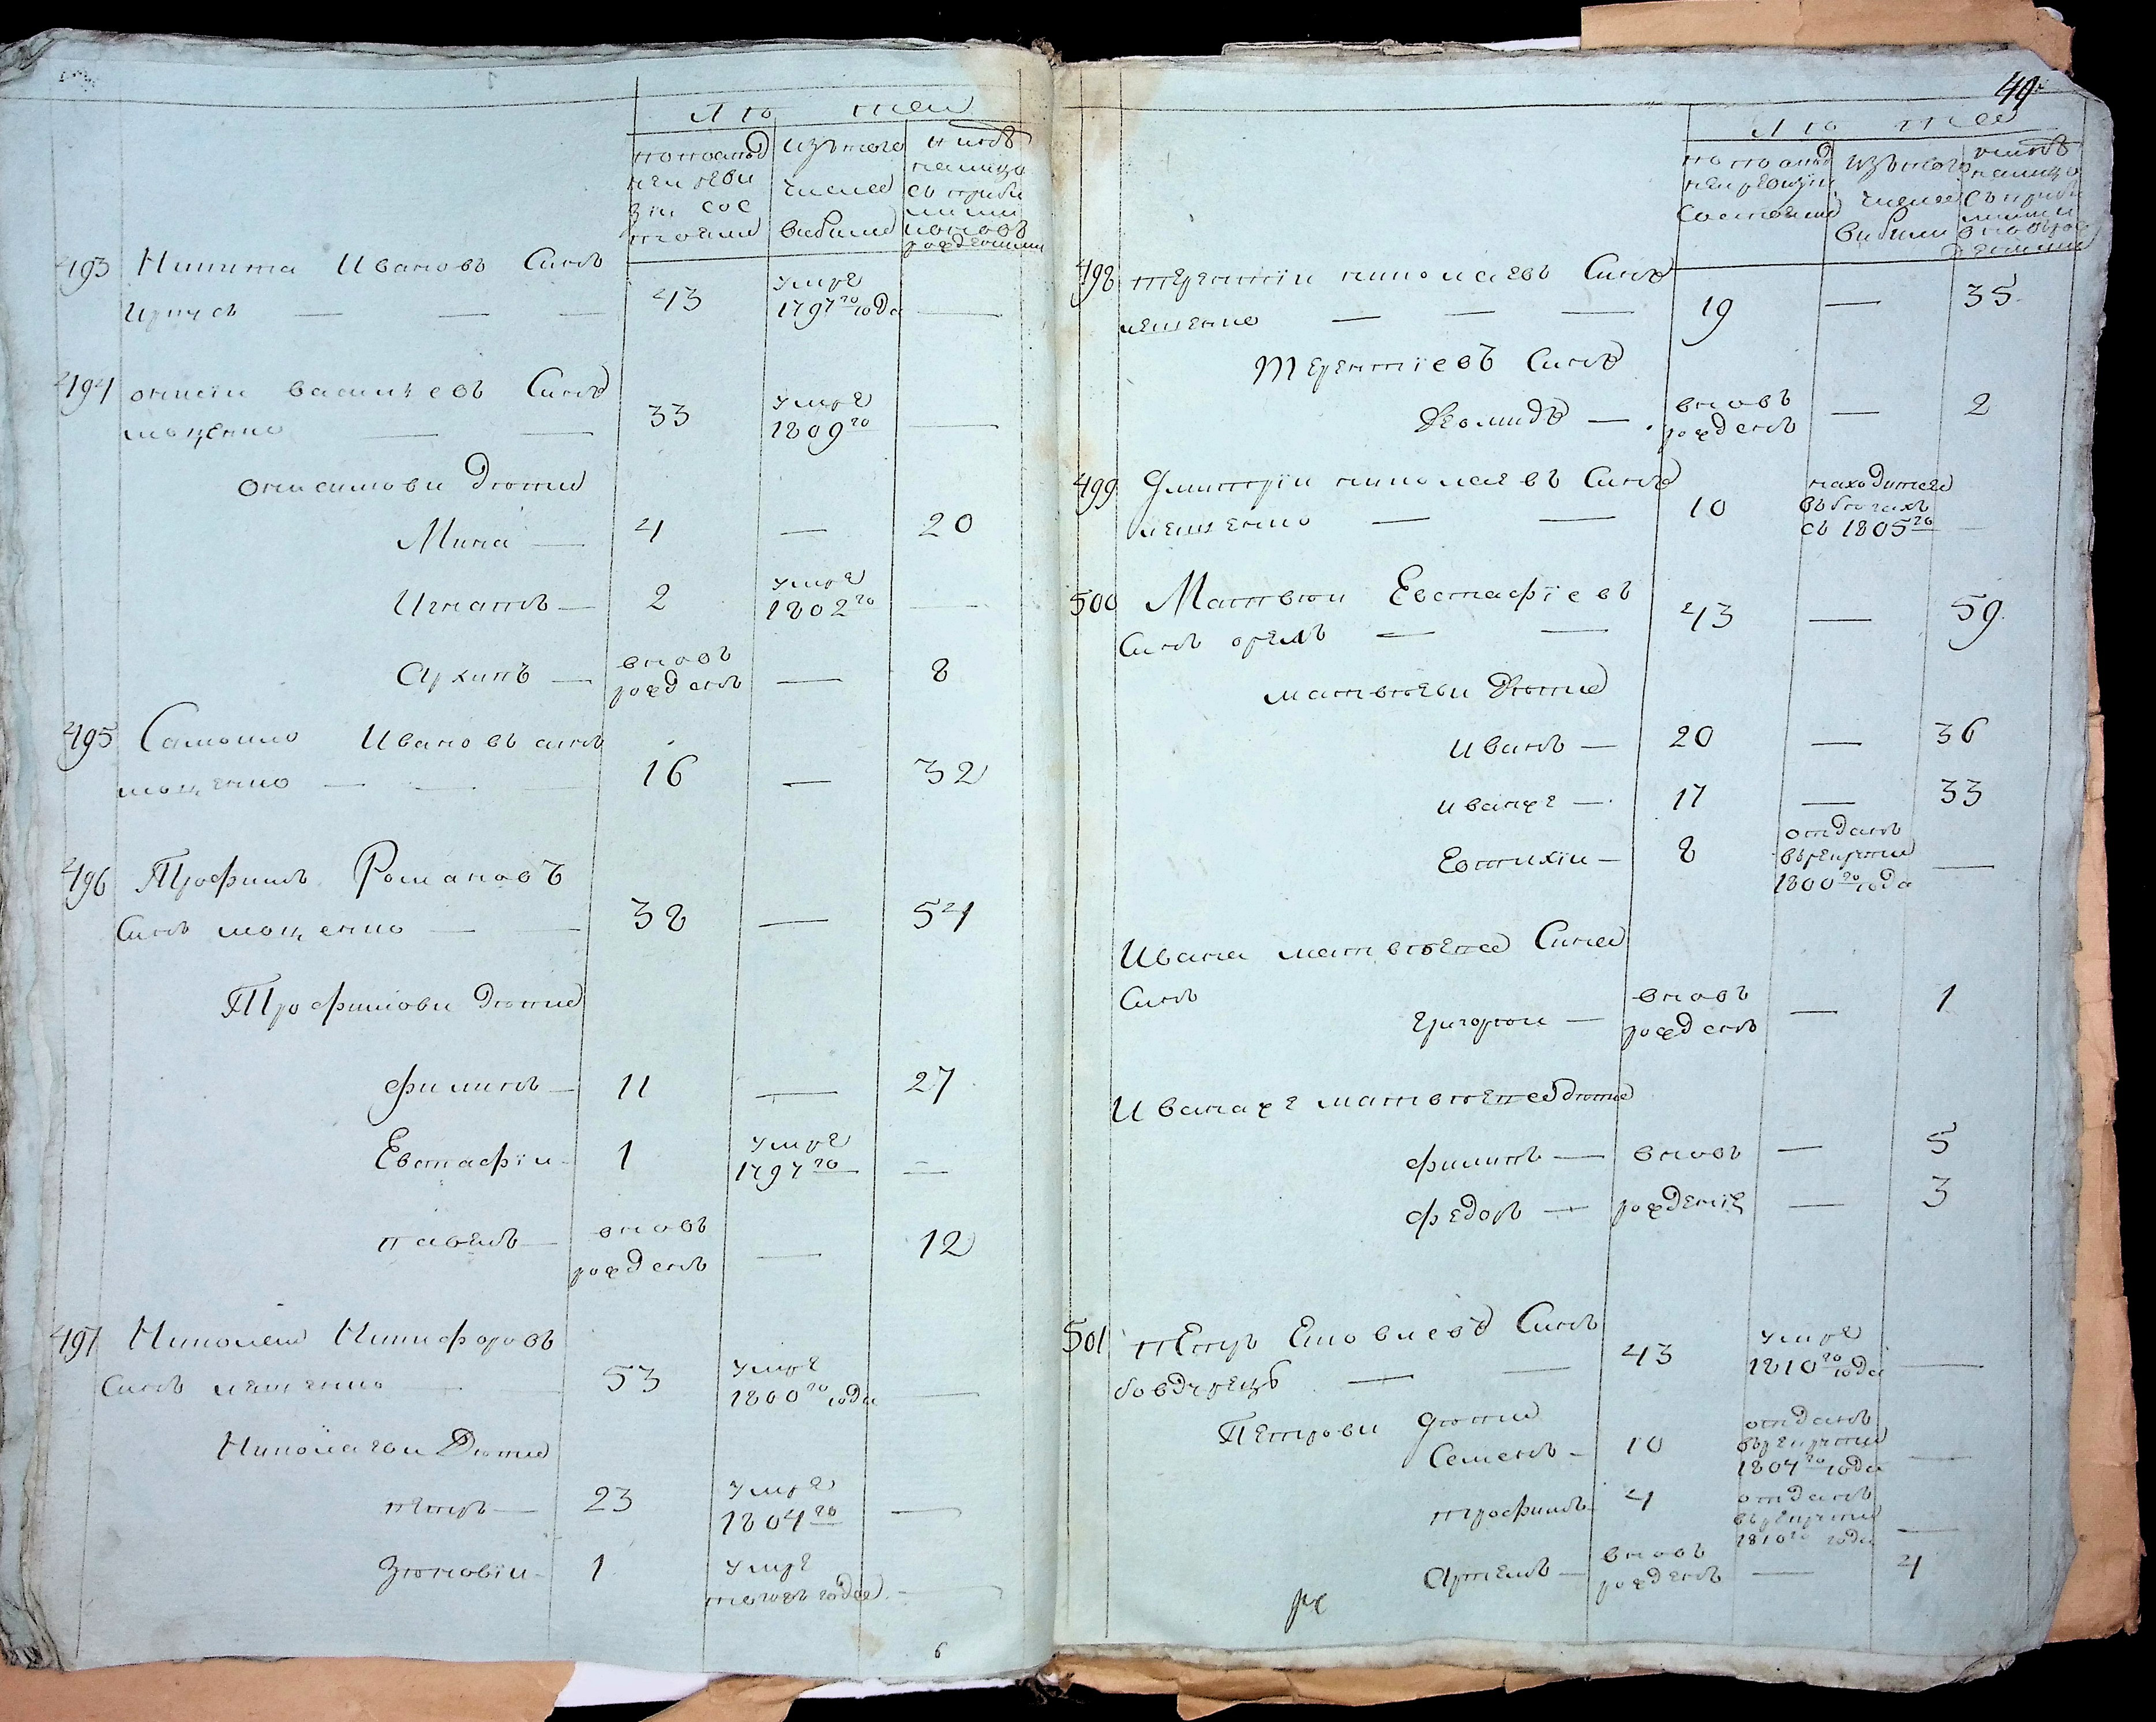 Лютаа
по послѣд
ней реви
зіи сос
тояли
изъ того
числа
выбыли
ныне
на лицо
съ прибы
лыми
и вновь
рожденными
493 Никита Ивановъ Сынъ
43
умре
1797го года
494 Онисим Васильевъ Сынъ
мощенко
33
умре
1809го
Онисимовы Дѣти
Мина — 4 — 20
Игнатъ — 2
умре
1802го
Архипъ —
вновь
рожденъ
— 8
495 Самойло Ивановъ сынъ
мощенко — — — 16 — 32
496 Трофимъ Романовъ
Сынъ мощенко — — 38 — 54
Трофимовы Дѣти
филипъ — 11 — 27
Евстафіи — 1
умре
1797го
павелъ —
вновь
рожденъ
— 12
497 Николай Никифоровъ
Сынъ лещенко
53
умре
1800го года
Николаевы Дѣти
петръ — 23
умре
1804го
Зѣновіи — 1
умре
того ж года
6
49
по послѣд
ней ревизіи
состояли
изъ того
числа
выбыли
ныне
на лицо
съ прибы
лыми
498 терентіи николаевъ Сынъ
лещенко — — — 19 — 35
Терентіевъ Сынъ
вновь
рожденъ
— 2
499 Дмитріи николаевъ Сынъ
лещенко — — 10
находится
въ бѣгахъ
съ 1805го
500 Матвѣи Евстафіевъ
Сынъ орелъ — — 43 — 59
матвѣевы Дѣти
иванъ — 20 — 36
иванже — 17 — 33
Евтихіи — 8
отданъ
въ рекруты
1800го года
Ивана матвѣева Сына
Сынъ
григореи —
вновь
рожденъ
— 1
Иванаже матвѣева дѣти
филипъ — вновь — 5
федоръ — рожденіе — 3
501 петръ Яковлевъ Сынъ
43
умре
1810го года
Петровы дѣти
Семенъ — 10
отданъ
въ рекруты
1804го года
трофимъ — 4
отданъ
въ рекруты
1810го года
Артемъ —
вновь
рожденъ
— 4